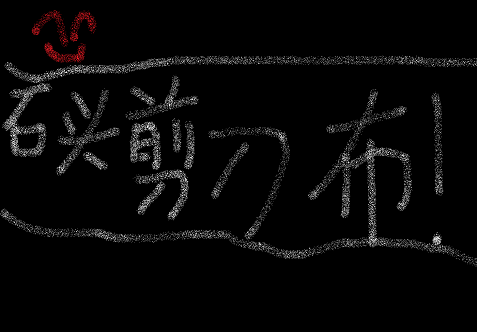 石头剪刀布!